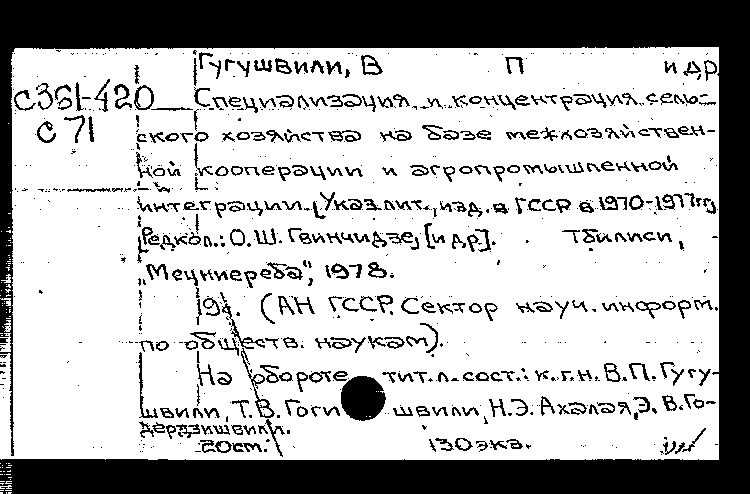 Гугушвили, В П и др.
С361-420 Специализация и концентрация сель-
С 71 ского хозяйства на базе межхозяйствен-
ной кооперации и агропромышленной
интеграции. (Указ. лит., изд. в ГССР в 1970-1977гг)
Редкол.: О.Ш. Гвинчидзе, [и др]. Тбилиси,
„Мецниереба“, 1978.
19с. (АН ГССР. Сектор науч. информ.
по обществ. наукам).
На обороте тит. л. сост.: к.г.н. В.П. Гугу-
швили, Т.В. Гоги швили, Н.Э. Ахалая, Э. В. Го-
дердзишвили.
20см. 130экз.